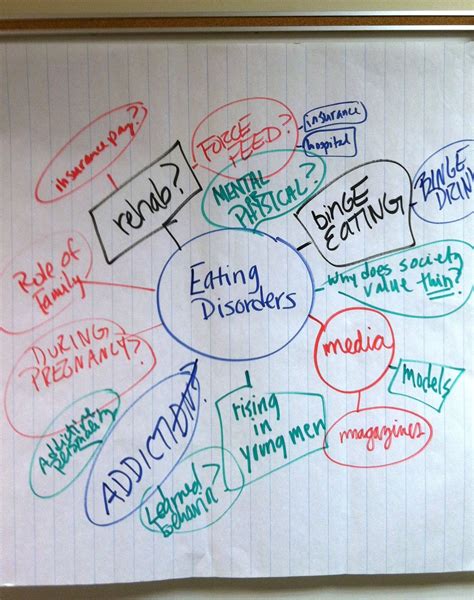 insurance pay?
FORCE
FEED?
insurance
hospital
rehab?
MENTAL
or
PHYSICAL?
binge
EATING
BINGE
DRIN
Role of
family
Eating
Disorders
Why does society
value thin?
DURING
PREGNANCY?
media
models
Addictive
personality
ADDICTION?
rising
in
young men
magazines
Learned
behavior?